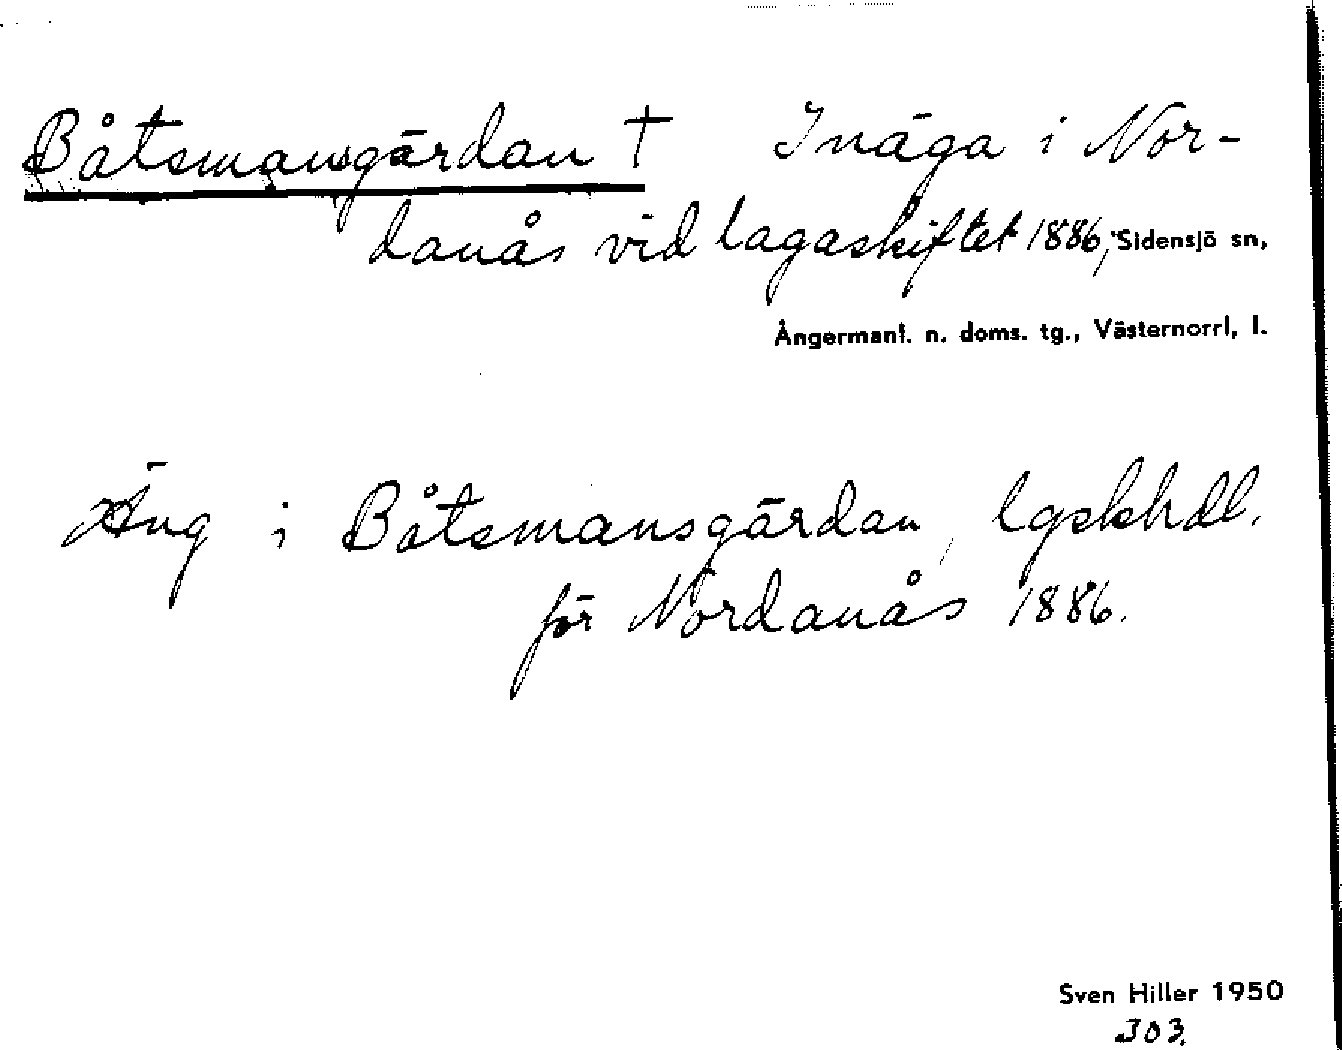 Båtsmansgärdan † Inäga i Nor-
danås vid lagaskiftet 1886, Sidensjö sn,
Ångermanl. n. doms. tg., Västernorrl. l.
Äng i Båtsmansgärdan, lgskhdl.
för Nordanås 1886.
Sven Hiller 1950
303.